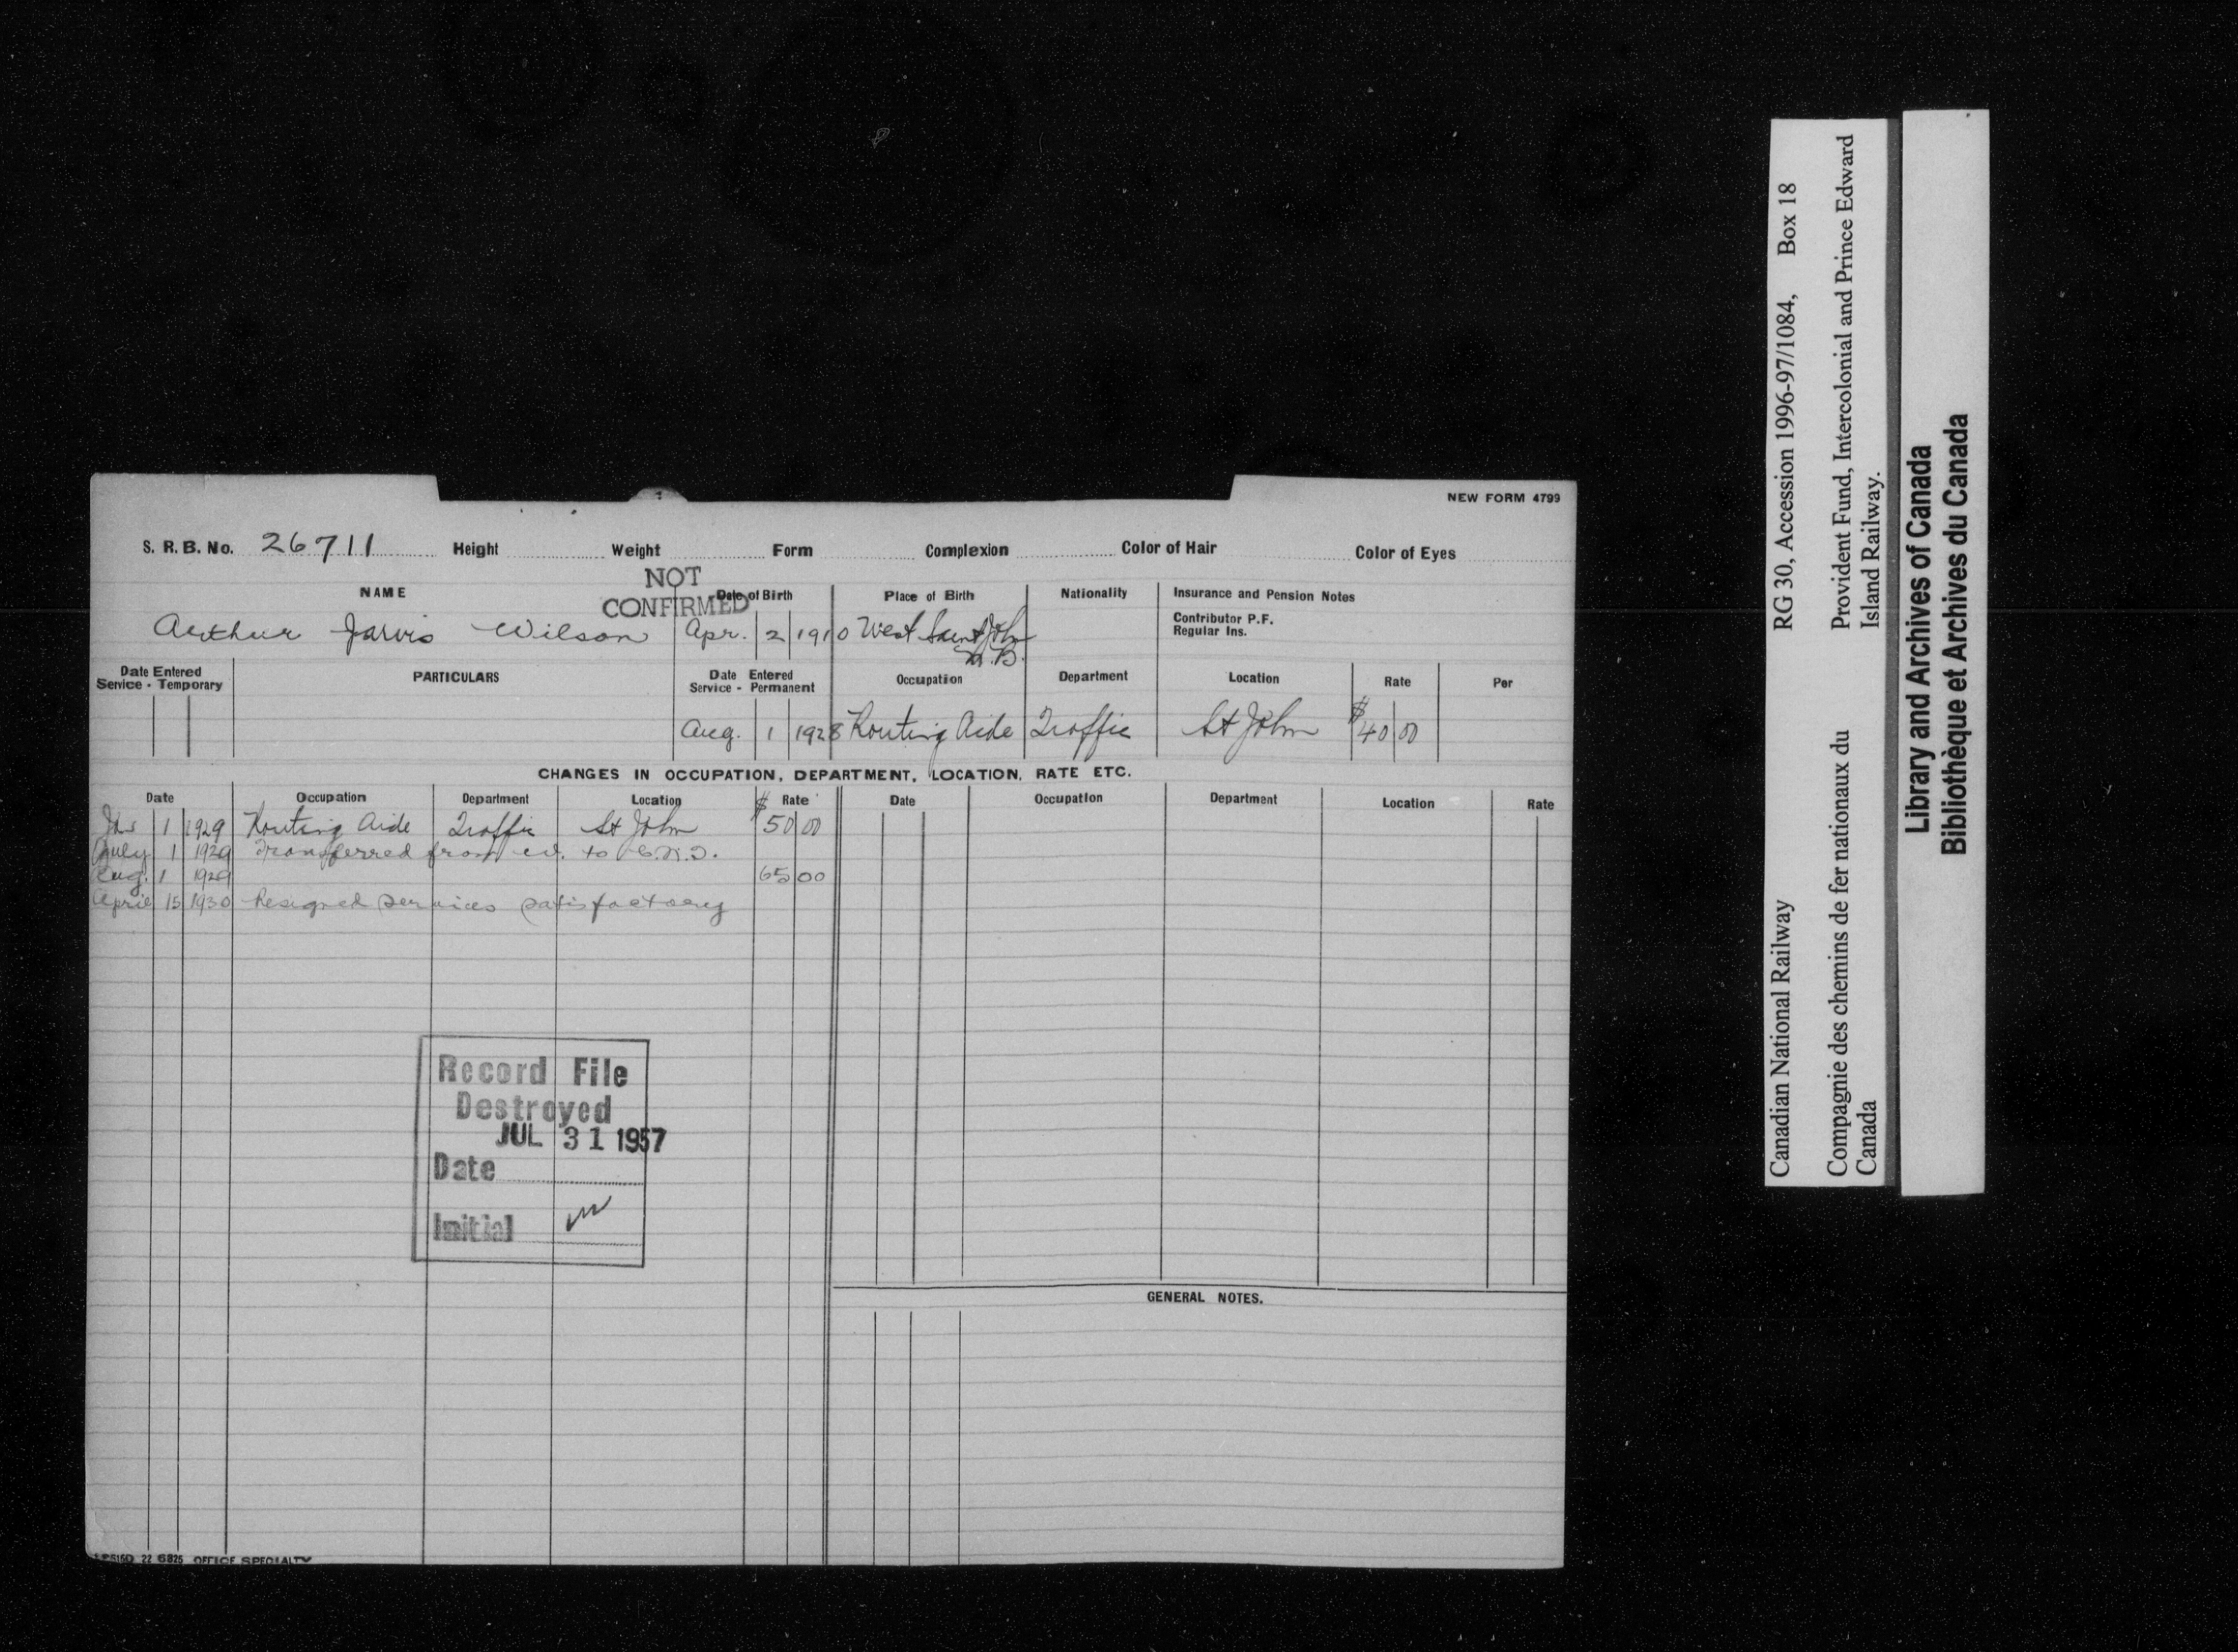 NEW FORM 4799
S. R. B. No. 26711 Height Weight Form Complexion Color of Hair Color of Eyes
NOT
CONFIRMED
NAME Date of Birth Place of Birth Nationality Insurance and Pension Notes
Contributor P.F.
Regular Ins.
Arthur Jarvis Wilson Apr. 2 1910 West Saint John
N.B.
Date Entered
Service - Temporary PARTICULARS Date Entered
Service - Permanent Occupation Department Location Rate Per
Aug. 1 1928 Routing Aide Traffic St John $ 40 00
CHANGES IN OCCUPATION, DEPARTMENT, LOCATION, RATE ETC.
Date Occupation Department Location $ Rate Date Occupation Department Location Rate
Jan 1 1929 Routing Aide Traffic St John 50 00
July 1 1929 Transferred from to
Aug. 1 1929 65 00
April 15 1930 Resigned services satisfactory
Record File
Destroyed
JUL 31 1957
Date
Initial
GENERAL NOTES.
22 6825 OFFICE SPECIALTY
Canadian National Railway RG 30, Accession 1996-97/1084, Box 18
Compagnie des chemins de fer nationaux du Provident Fund, Intercolonial and Prince Edward
Canada Island Railway.
Library and Archives of Canada
Bibliothèque et Archives du Canada